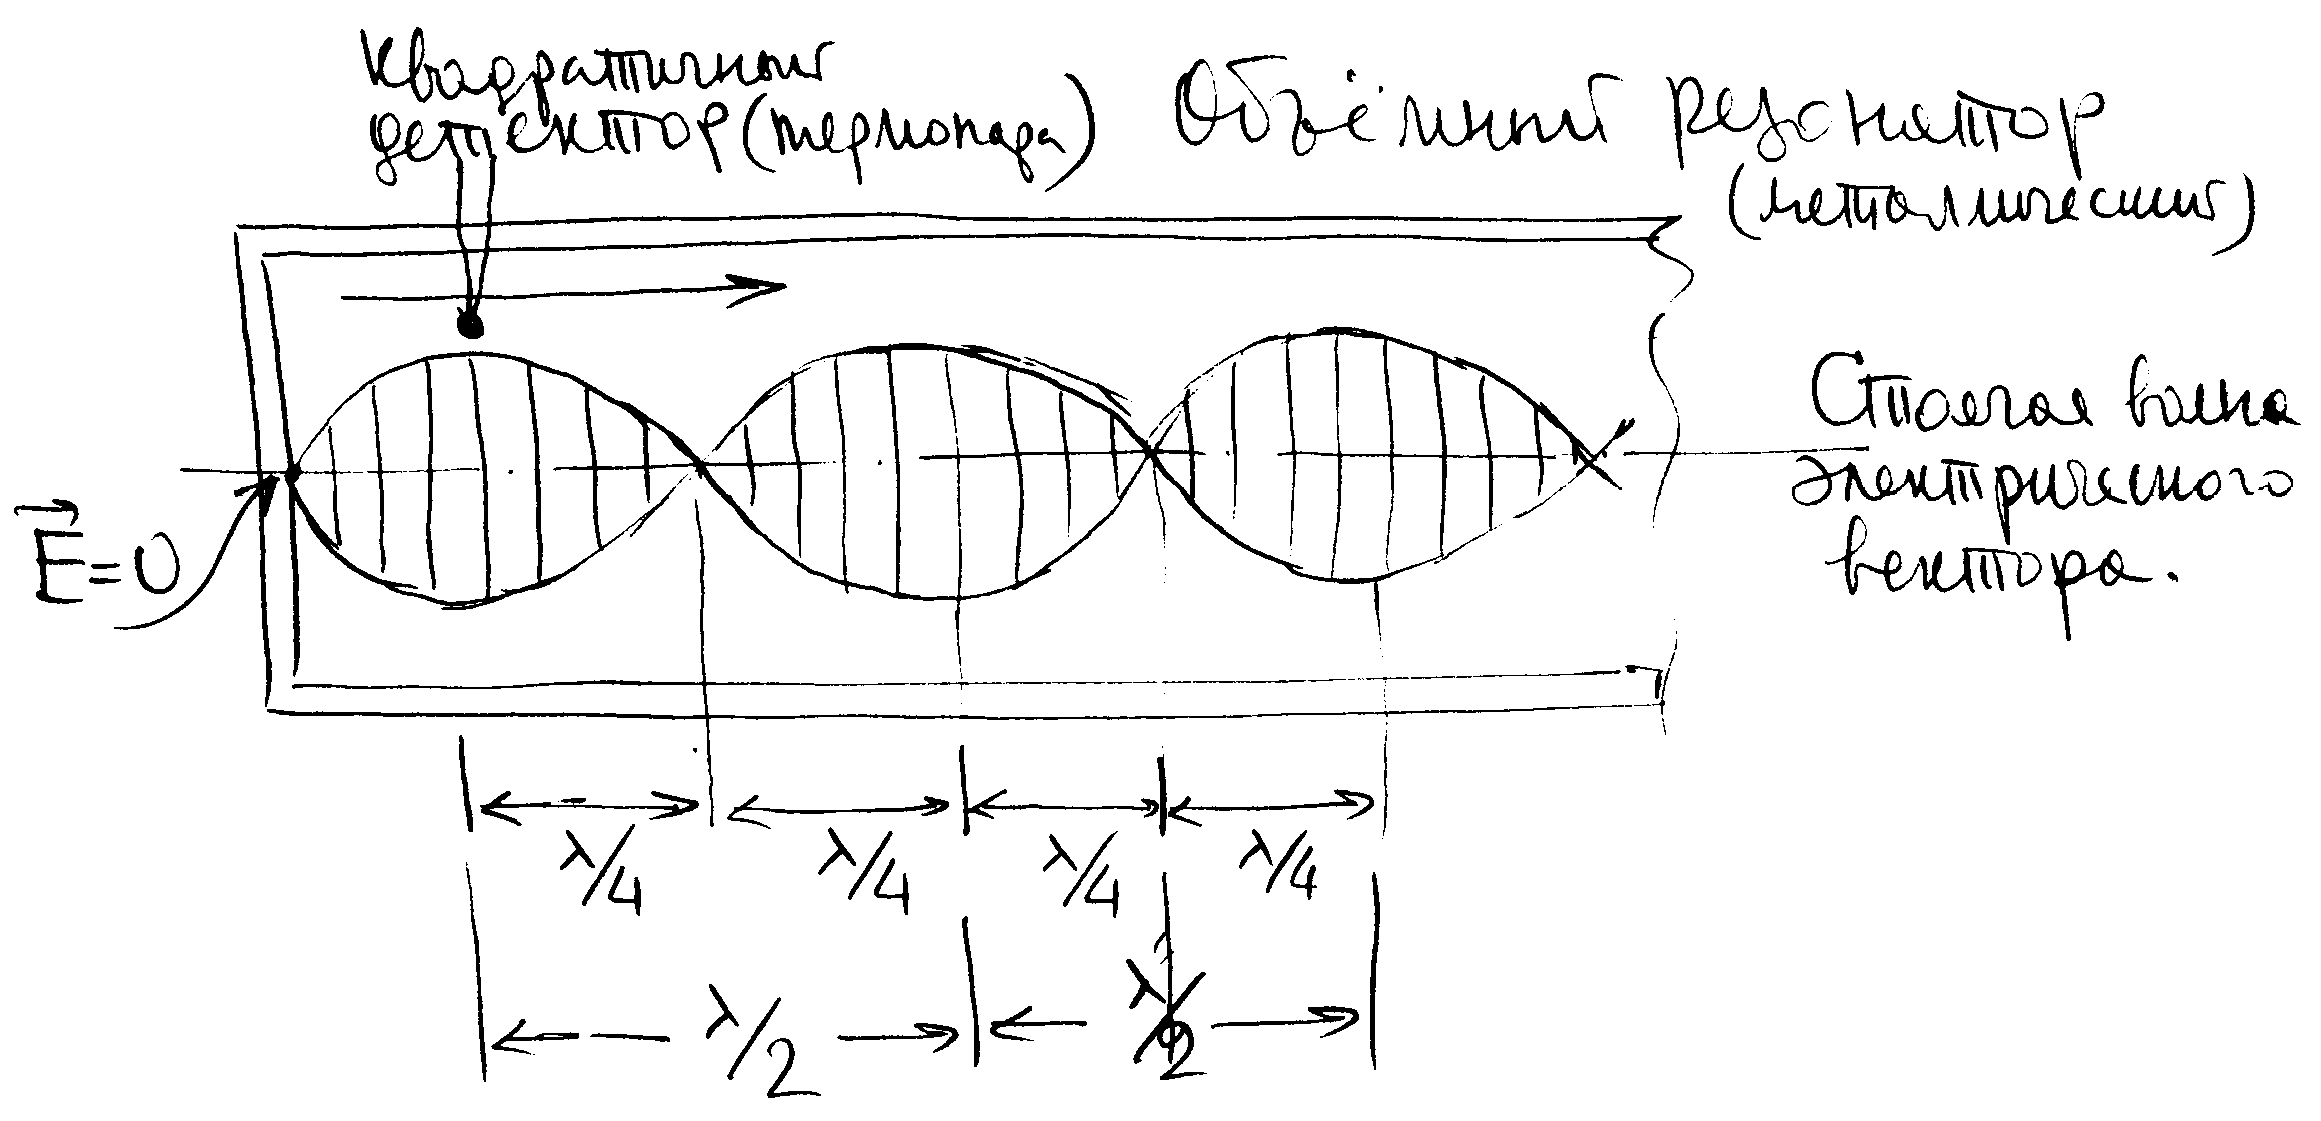 Квадратичный
детектор (термопара)
Объёмный резонатор
(металлический)
Стоячая волна
электрического
вектора.
E=0
λ/4
λ/4
λ/4
λ/4
λ/2
λ/2